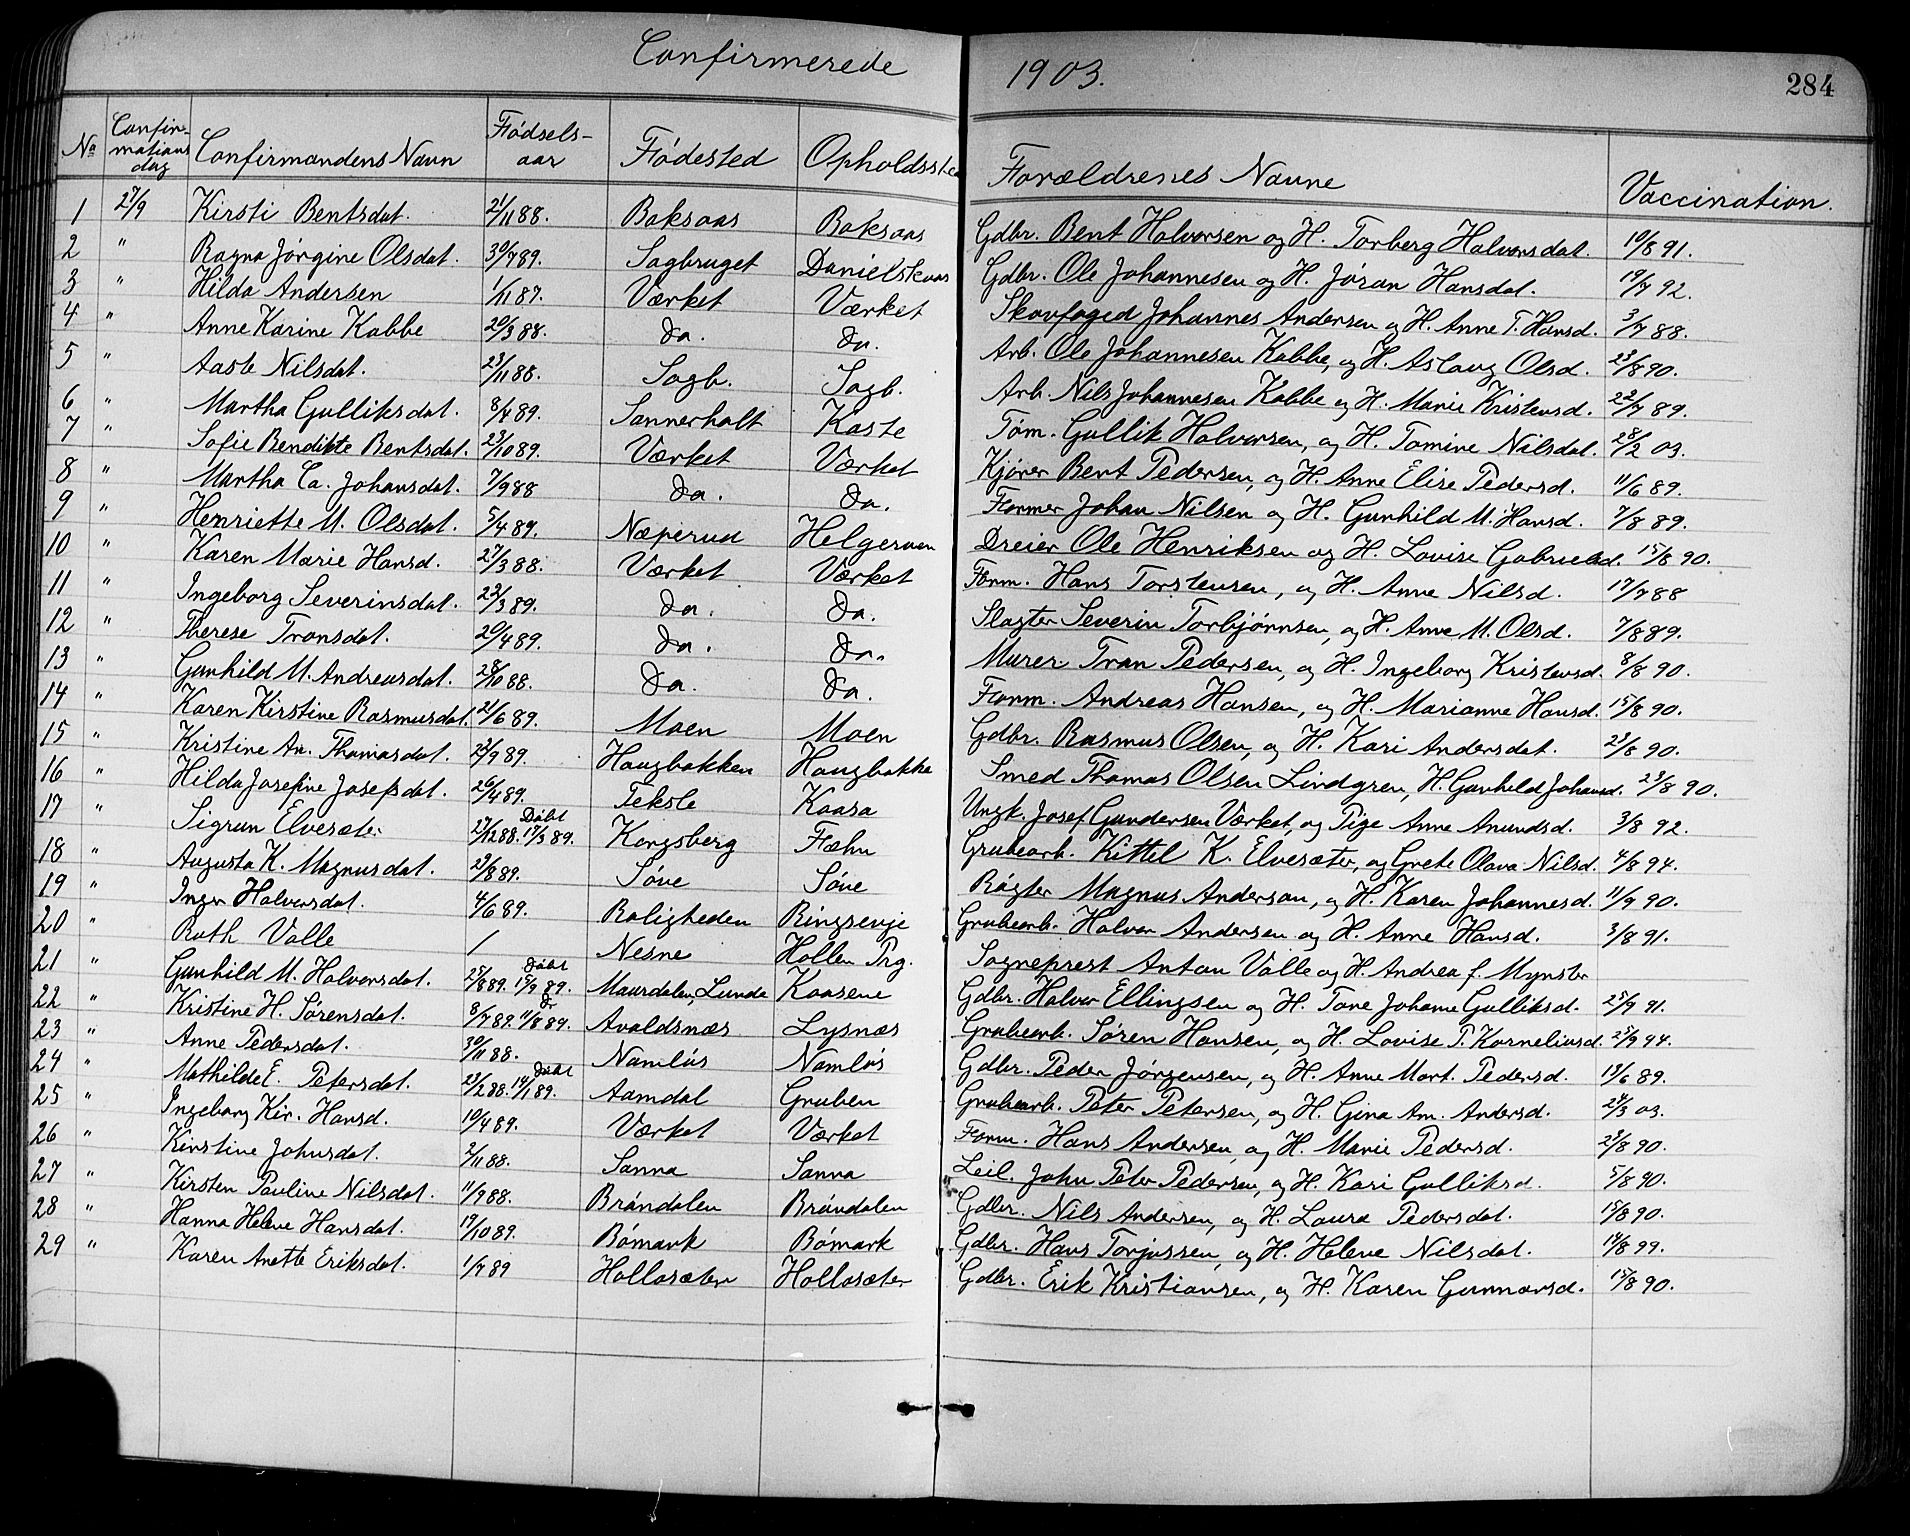 Confirmerede 1903. 284
No Confirmationsdag Confirmandens Navn Fødselsaar Fødested Opholdsste Forældrenes Navne Vaccination.
1 27/9 Kirsti Bentsdat. 21/11 88. Baksaas Baksaas Gdbr. Bent Halvorsen og H. Torberg Halvorsdat. 10/8 91.
2 " Ragna Jørgine Olsdat. 30/7 89. Sagbruget Danielskaas Gdbr. Ole Johannesen og H. Jøran Hansdat. 19/7 92.
3 " Hilda Andersen 1/11 87. Værket Værket Skovfoged Johannes Andersen og H. Anne T. Hansd. 3/7 88.
4 " Anne Karine Kabbe 20/3 88. do. do. Arb. Ole Johannesen Kabbe, og H. Aslaug Olsd. 23/8 90.
5 " Aaste Nilsdat. 23/11 88. Sagb. Sagb. Arb. Nils Johannesen Kabbe og H. Marie Kristensd. 22/7 89.
6 " Martha Gulliksdat. 8/4 89. Sannerholt Kaste Tøm. Gullik Halvorsen, og H. Tomine Nilsdat. 28/2 03.
7 " Sofie Bendikte Bentsdat. 23/10 89. Værket Værket Kjører Bent Pedersen, og H. Anne Elise Pedersd. 11/6 89.
8 " Martha Ca. Johansdat. 7/9 88 do. do. Former Johan Nilsen og H. Gunhild M. Hansd. 7/8 89.
9 " Henriette M. Olsdat. 5/4 89. Næperud Helgeroen Dreier Ole Henriksen og H. Lovise Gabrielsd. 15/8 90.
10 " Karen Marie Hansd. 27/3 88. Værket Værket Form. Hans Torstensen, og H. Anne Nilsd. 17/7 88
11 " Ingeborg Severinsdat. 22/3 89. do. do. Slagter Severin Torbjørnsen, og H. Anne M. Olsd. 7/8 89.
12 " Therese Tronsdat. 20/4 89. do. do. Murer Tron Pedersen, og H. Ingeborg Kristensd. 8/8 90.
13 " Gunhild M. Andreasdat. 28/10 88. do. do. Form. Andreas Hansen, og H. Marianne Hansd. 15/8 90.
14 " Karen Kirstine Rasmusdat. 21/6 89. Moen Moen Gdbr. Rasmus Olsen, og H. Kari Andersdat. 23/8 90.
15 " Kristine An. Thomasdat. 22/9 89. Haugbakken Haugbakke Smed Thomas Olsen Lindgren, H. Gunhild Johansd. 23/8 90.
16 " Hilda Josefine Josefsdat. 26/4 89. Tekste Kaasa Ungk. Josef Gundersen Værket, og Pige Anne Anundsd. 3/8 92.
17 " Sigrun Elvesæter 27/12 88. Døbt 17/3 89. Kongsberg Fæhn Grubearb. Kittel K. Elvesæter, og Grete Olava Nilsd. 4/8 94.
18 " Augusta K. Magnusdat. 29/8 89. Søve Søve Røgter Magnus Anderson, og H. Karen Johannesd. 11/9 90.
19 " Inger Halvorsdat. 4/6 89. Roligheden Ringsevje Grubearb. Halvor Andersen og H. Anne Hansd. 3/8 91.
20 " Ruth Valle / Nesne Hollen Prg. Sogneprest Anton Valle og H. Andrea f. Mynster
21 " Gunhild M. Halvorsdat. 25/8 89. Døbt 15/9 89. Maurdalen, Lunde Kaasene Gdbr. Halvor Ellingsen og H. Tone Johanne Gulliksd. 25/9 91.
22 " Kristine H. Sørensdat. 8/7 89. Dr 11/8 89. Avaldsnæs Lysnæs Grubearb. Søren Hansen, og H. Lovise P. Korneliusd. 25/9 94.
23 " Anne Pedersdat. 30/11 88. Namløs Namløs Gdbr. Peder Jørgensen, og H. Anne Mart. Pedersd. 13/6 89.
24 " Mathilde E. Petersdat. 23/2 88. Døbt 14/1 89. Aamdal Gruben Grubearb. Peter Petersen, og H. Gina Am. Andersd. 24/3 03.
25 " Ingeborg Kir. Hansd. 10/4 89. Værket Værket Form. Hans Andersen, og H. Marie Pedersd. 23/8 90.
26 " Kirstine Johnsdat. 2/11 88. Sanna Sanna Leil. John Peter Pedersen, og H. Kari Gulliksd. 5/8 90.
27 " Kirsten Pauline Nilsdat. 11/9 88. Brøndalen Brøndalen Gdbr. Nils Andersen, og H. Laura Pedersdat. 15/8 90.
28 " Hanna Helene Hansdat. 19/10 89. Bømark Bømark Gdbr. Hans Torjussen, og H. Helene Nilsdat. 14/8 99.
29 " Karen Anette Eriksdat. 1/7 89 Hollasæter Hollasæter Gdbr. Erik Kristiansen, og H. Karen Gunnarsd. 15/8 90.